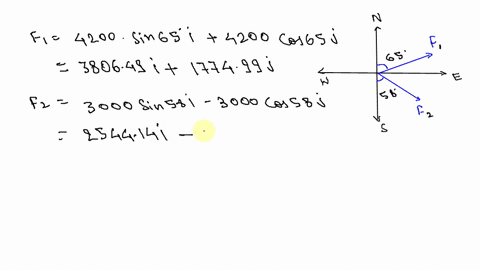 F₁ = 4200 · sin65° i + 4200 cos65 j
= 3806.49 i + 1774.99 j
F₂ = 3000 sin58 i - 3000 cos58 j
= 2544.14 i -
N
65°
F₁
W
E
58°
F₂
S